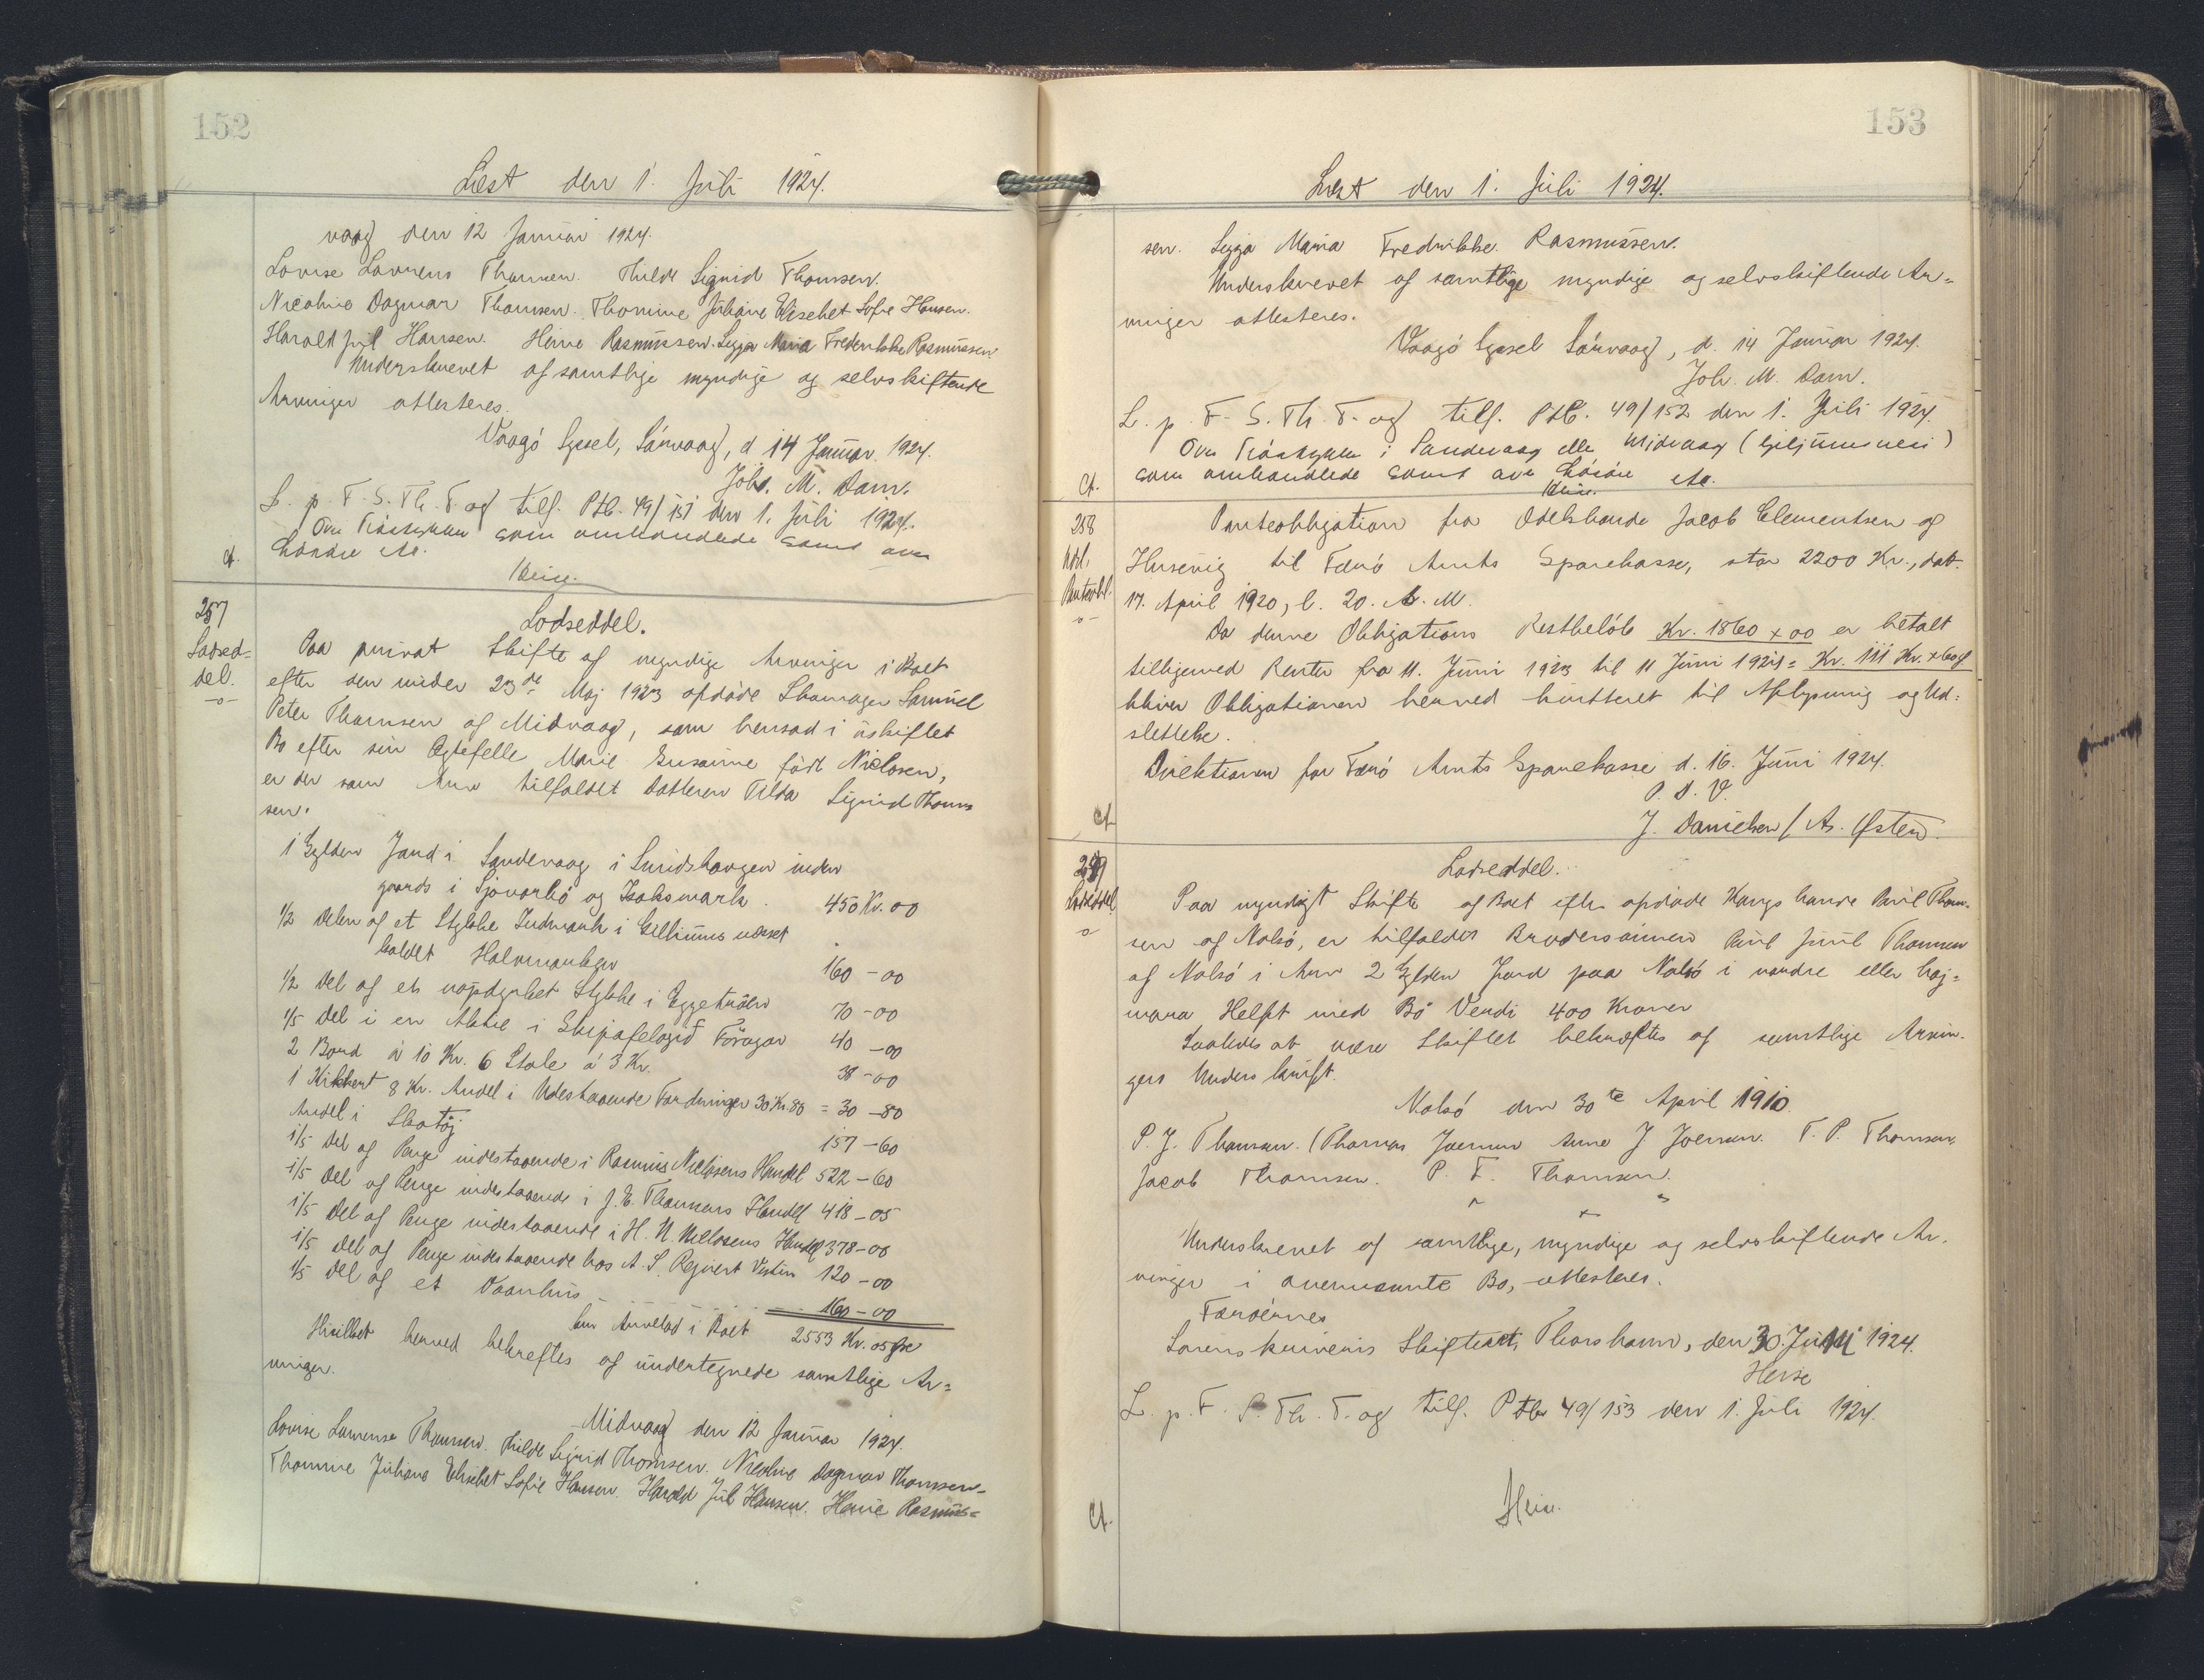 152
Læst den 1. Juli 1924.
vaag den 12 Januar 1924.
Lovise Laurens Thomsen. Thilde Signid Thomsen.
Nicoline Dagmar Thomsen. Thomine Juliane Elisebet Sofie Hansen.
Harald Juul Hansen. Heine Rasmussen. Sigga Maria Frederikke Rasmussen
Underskrevet af samtlige myndige og selvskiftende
Arvinger attesteres.
Vaagø Syssel, Sórvaag, d 14 Januar 1924.
Joh. M. Dam.
L. p. F. S. Th. T. og tilf. Ptb. 49/151 den 1. Juli 1924.
Ovn som omhandlede samt ovn
Ct. Løsøre etc.
Heise.
257
Lodsed=
del.
-o-
Lodseddel.
Paa privat Skifte af myndige Arvinger i Boet
efter den under 23de Maj 1923 afdøde Skomager Samuel
Peter Thomsen af Midvaag, som hensad i uskiftet
Bo efter sin Egtefelle Marie Susanne født Nielsen,
er der som Arv tilfaldet Datteren Tilda Signid Thom
sen.
1 Gylden Jord i Sandevaag i Suridshavgen inden
gaards i Sjovarbø og Isaksmark. 450 Kr. 00
1/2 Delen af et Stykke Indmark i
kaldet Halvmarken 160 - 00
1/2 Del af et uopdyrket Stykke i 70 - 00
1/5 Del i en Aktie i Skipafelagid Föroyar 40 - 00
2 Bord à 10 Kr. 6 Stole à 3 Kr. 38 - 00
1 Kikkert 8 Kr. Andel i Udestaaende Fordringer 30 Kr. 80 = 30 - 80
Andel i Skotøj 157 - 60
1/5 Del af Penge indestaaende i Rasmus Nielsens Handel 522 - 60
1/5 Del af Penge indestaaende i J. E. Thomsens Handel 418 - 05
1/5 Del af Penge indestaaende i H. N. Nielsens Handel 378 - 00
1/5 Del af Penge indestaaende hos A. S. 120 - 00
1/5 Del af et Vaanhus 160 - 00
hun Arvelod i Boet 2553 Kr. 05 Øre
Hvilket herved bekreftes af undertegnede samtlige Ar=
vinger.
Midvaag den 12 Januar 1924.
Lovise Laurense Thomsen. Thilde Signid Thomsen. Nicoline Dagmar Thomsen.
Thomine Juliane Elisebet Sofie Hansen. Harald Jul Hansen. Heine Rasmus=
153
Læst den 1. Juli 1924.
sen. Sigga Maria Fredrikke Rasmussen.
Underskrevet af samtlige myndige og selvskiftende Ar=
vinger attesteres.
Vaagø Syssel Sórvaag, d. 14 Januar 1924.
Joh. M. Dam.
L. p. F. S. Th. T. og tilf. Ptb. 49/152 den 1. Juli 1924.
Ovn i Sandevaag elle Midvaag
Ct. som omhandlede samt ovn Løsøre etc.
Heise.
258
Udsl.
Panteobl.
-o-
Panteobligation fra Odelsbonde Jacob Clementsen af
Husevig til Færø Amts Sparekasse, stor 2200 Kr., dat.
17. April 1920, l. 20. s. M.
Da denne Obligations Restbeløb Kr. 1860 x 00 er betalt
tilligemed Renter fra 11. Juni 1923 til 11 Juni 1924 = Kr. 111 Kr. x 60 Ø
bliver Obligationen herved kvitteret til Aflysning og Ud=
slettelse.
Direktionen for Færø Amts Sparekasse d. 16. Juni 1924.
P. D. V.
Ct.
J. Danielsen / A. Østen.
259
Lodseddel
-o-
Lodseddel.
Paa myndigt Skifte af Boet efter afdøde Kongsbonde Poul Thom=
sen af Nolsø, er tilfaldet Brodersønnen Poul Juul Thomsen
af Nolsø i Arv 2 Gylden Jord paa Nolsø i nordre eller høj=
mara Helft med Bø Verdi 400 Kroner
Saaledes at være Skiftet bekreftes af samtlige Arvin=
gers Underskrift.
Nolsø den 30te April 1910.
P. J. Thomsen. (Thomas Joensen Anne J Joensen. T. P. Thomsen,
Jacob Thomsen. P. F. Thomsen.
Underskrevet af samtlige, myndige og selvskiftende Ar=
vinger i overnævnte Bo, attesteres.
Færøernes
Sorenskriveris Skifteret, Thorshavn, den 30. Juni 1924.
Heise
L. p. F. S. Th. T. og tilf. Ptb 49/153 den 1. Juli 1924.
Heise.
Ct.